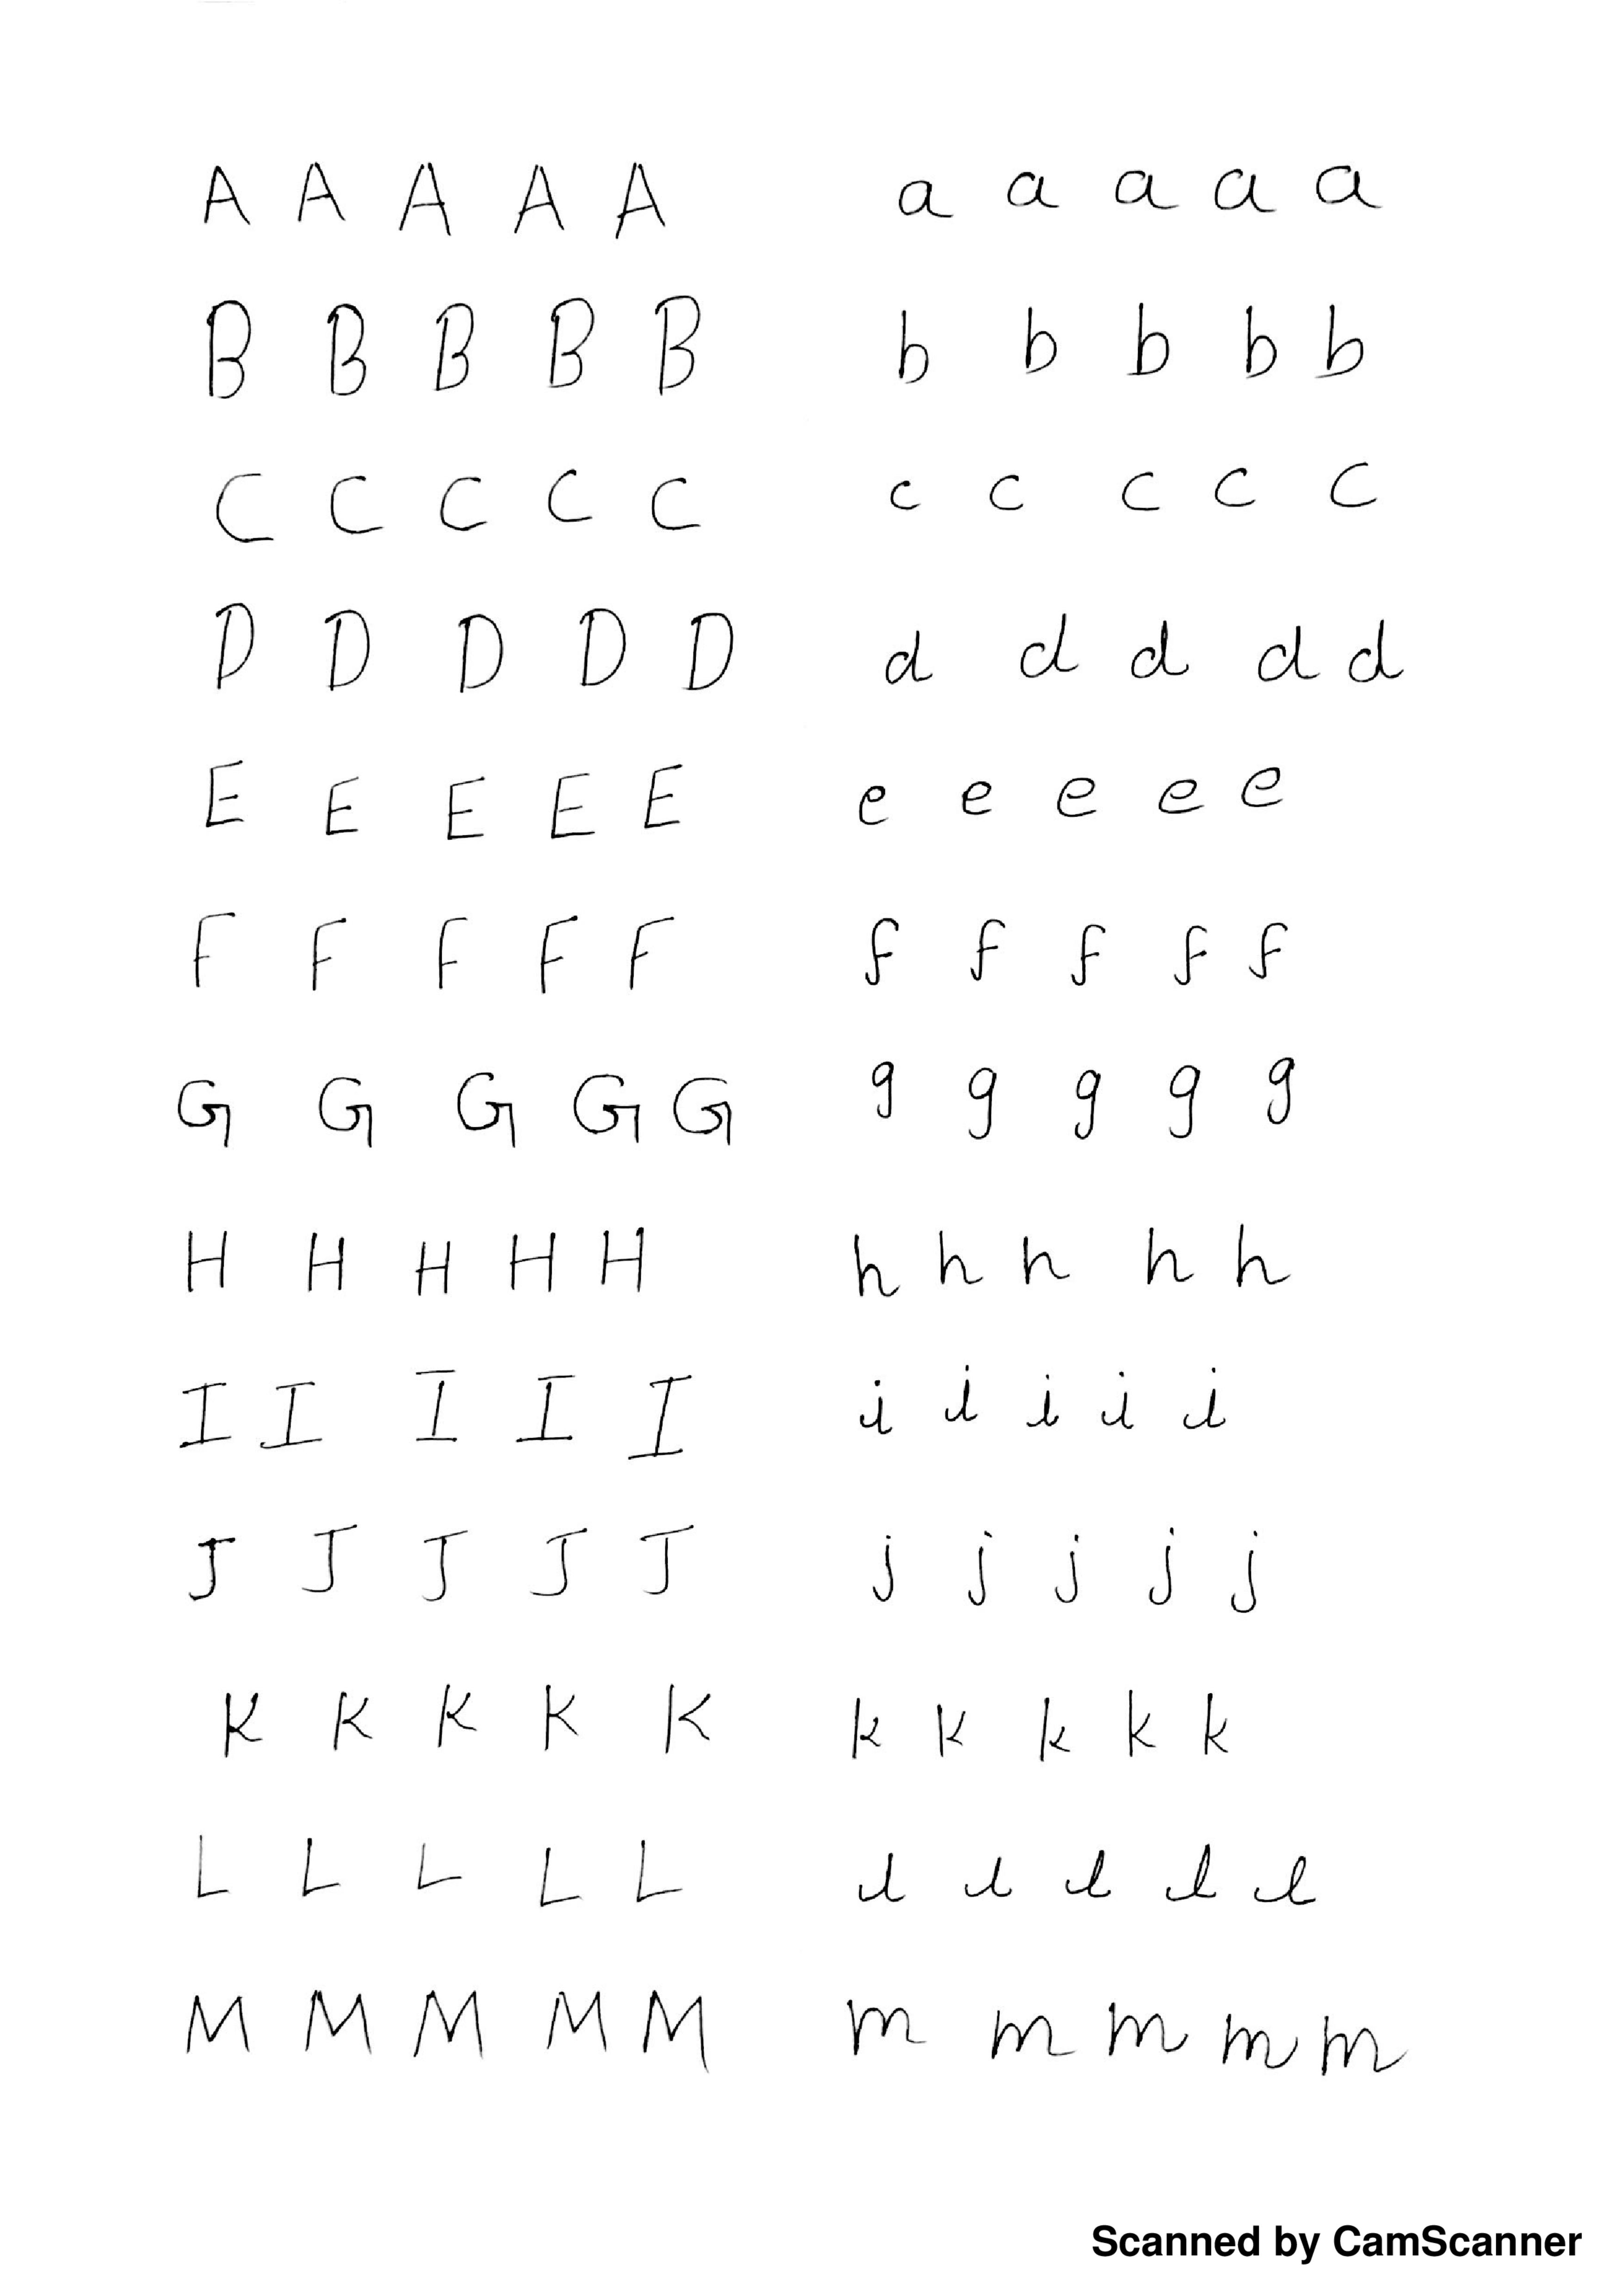 A A A A A a a a a a
B B B B B b b b b b
C C C C C c c c c c
D D D D D d d d d d
E E E E E e e e e e
F F F F F f f f f f
G G G G G g g g g g
H H H H H h h h h h
I I I I I i i i i i
J J J J J j j j j j
K K K K K k k k k k
L L L L L l l l l l
M M M M M m m m m m
Scanned by CamScanner